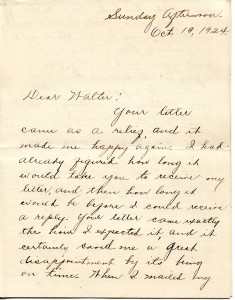 Sunday Afternoon.
Oct. 19, 1924.
Dear Walter:
Your letter
came as a relief, and it
made me happy again. I had
already figured how long it
would take you to receive my
letter, and then how long it
would be before I could receive
a reply. Your letter came exactly
the time I expected it, and it
certainly saved me a great
disappointment by its being
on time. When I mailed my